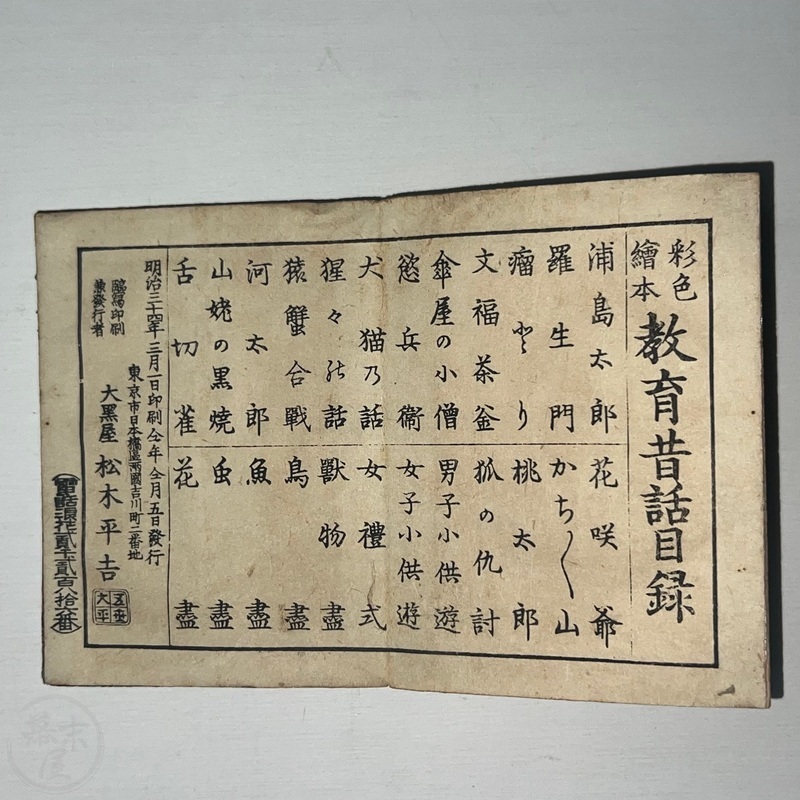 彩色
繪本
教育昔話目録
浦島太郎
羅生門
瘤とり
文福茶釜
傘屋の小僧
慾兵衞
犬猫乃話
猩々の話
猿蟹合戰
河太郎
山姥の黒燒
舌切雀
花咲爺
かち〱山
桃太郎
狐の仇討
男子小供遊
女子小供遊
女禮式
獸物盡
鳥盡
魚盡
虫盡
花盡
明治三十四年三月一日印刷仝年仝月五日發行
東京市日本橋區兩國吉川町二番地
臨寫印刷
兼發行者
大黒屋 松木平吉